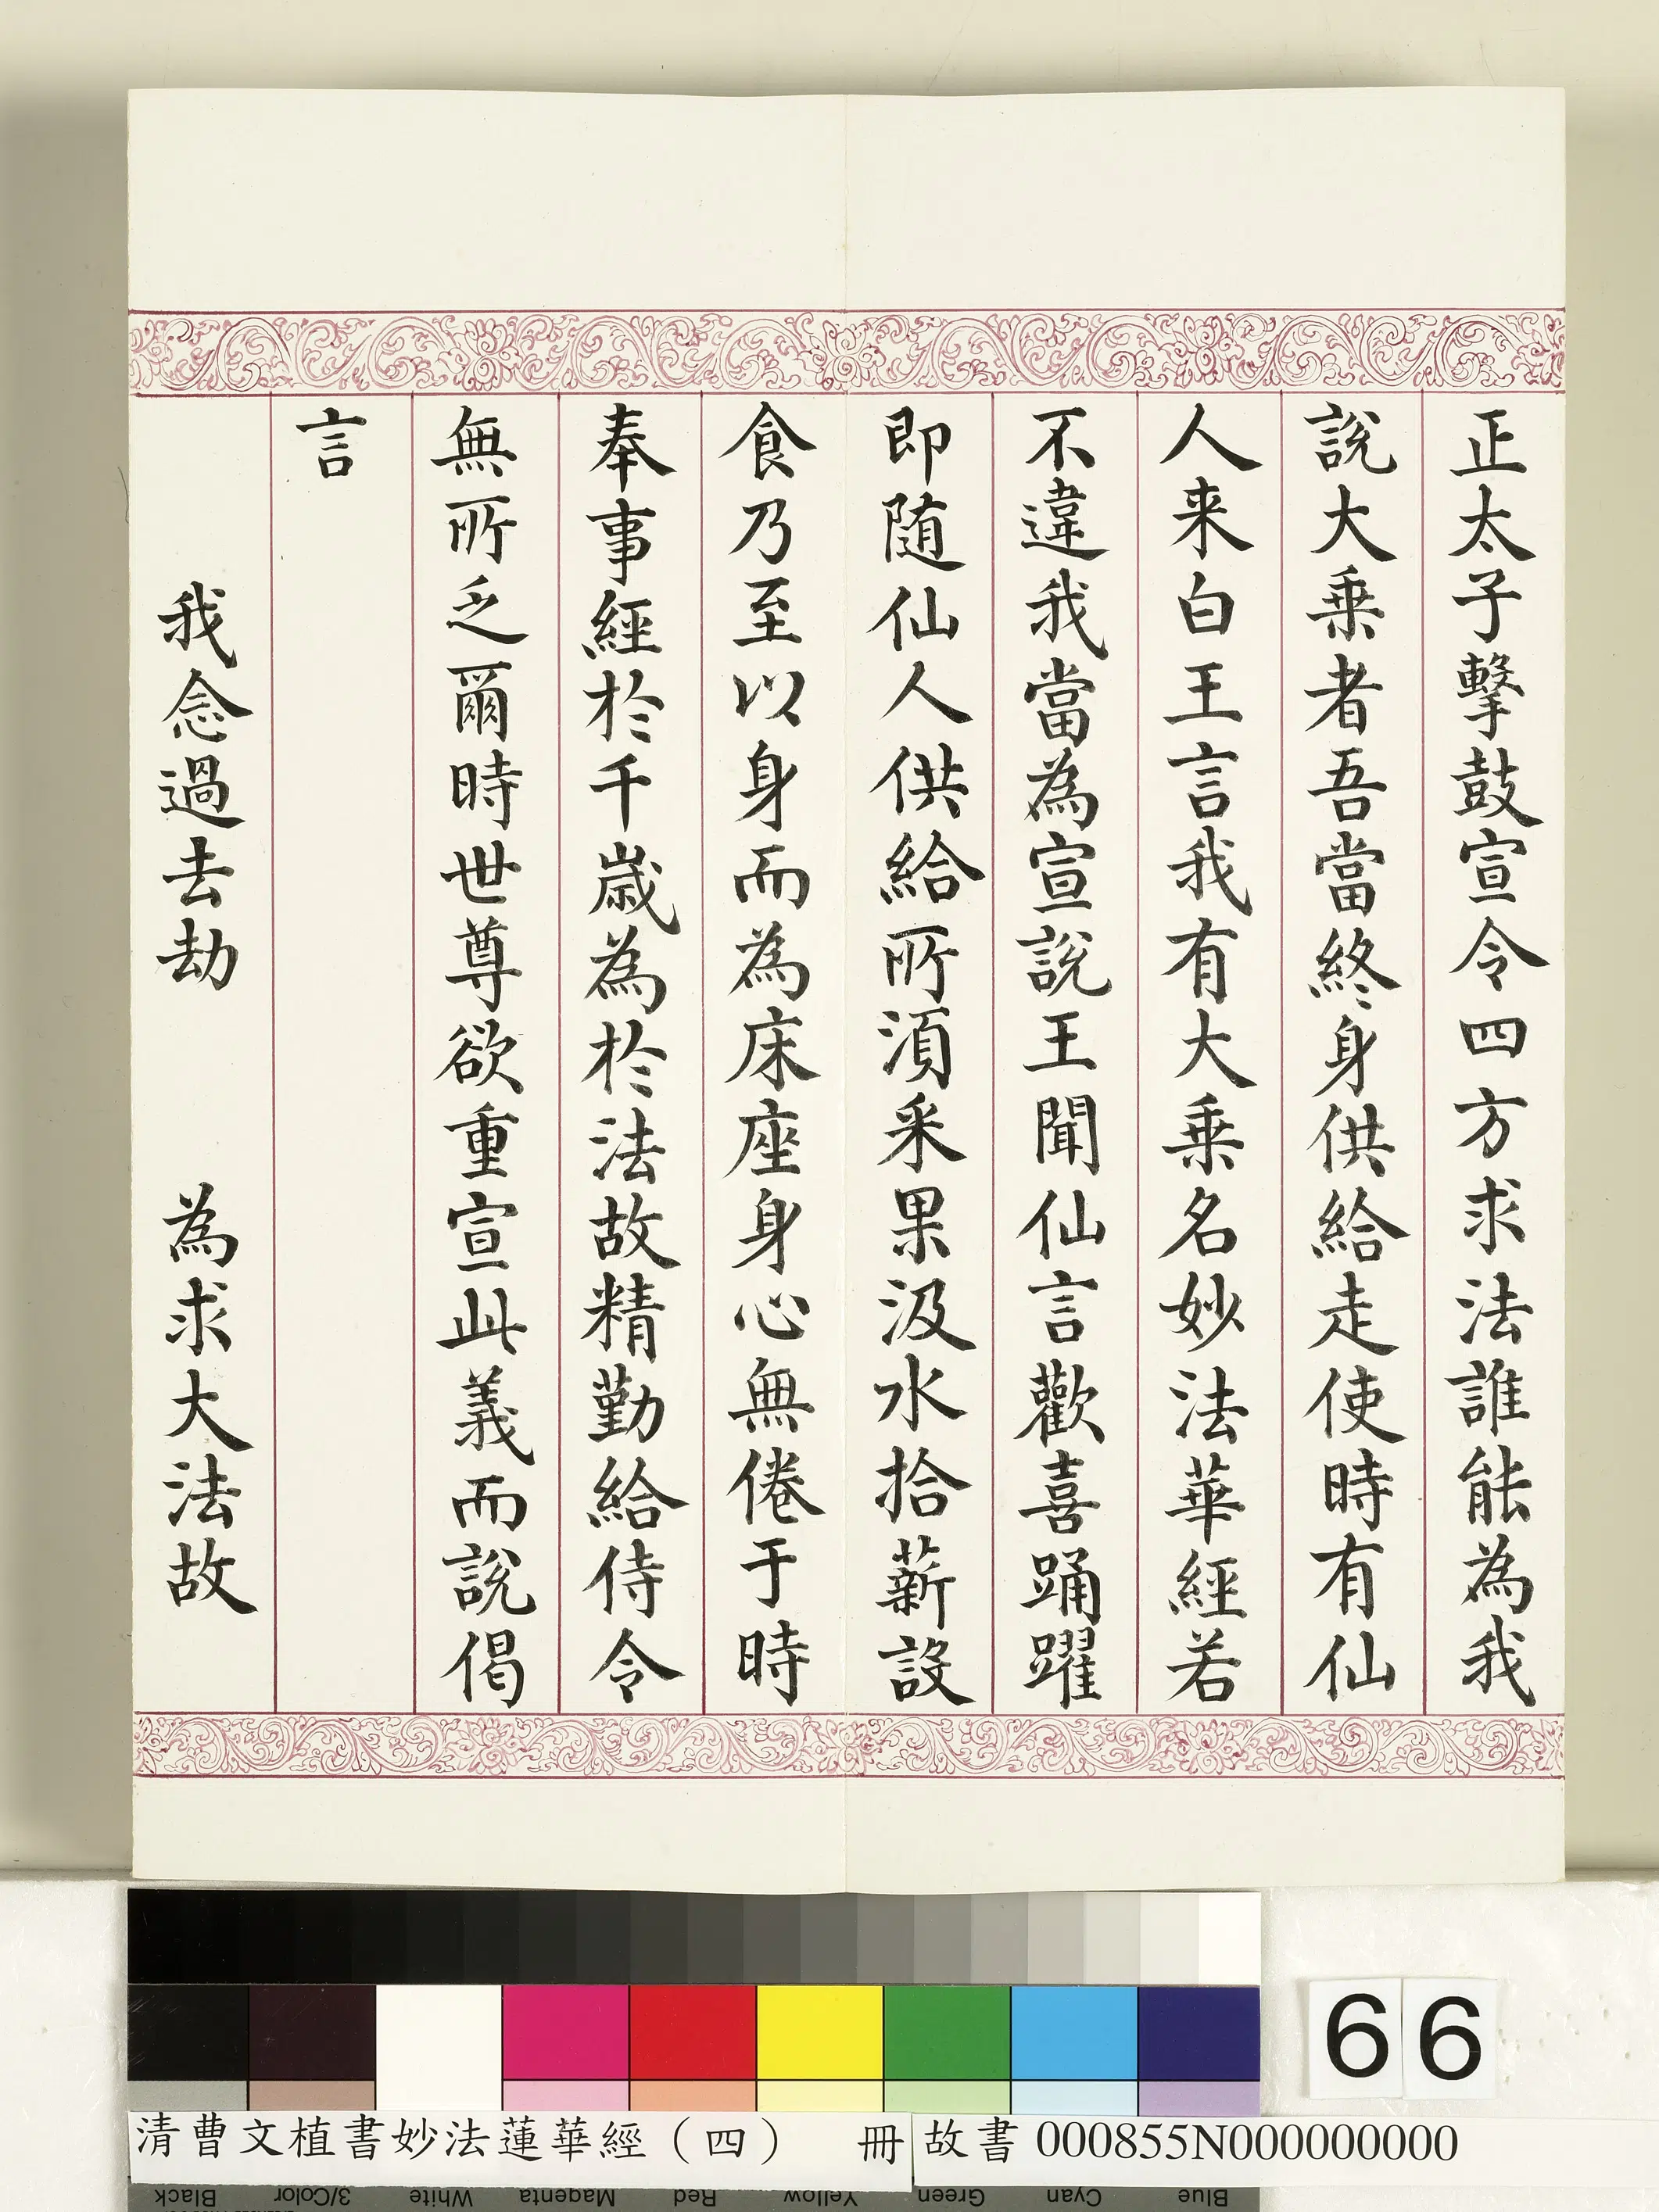 正太子擊鼓宣令四方求法誰能為我
說大乗者吾當終身供給走使時有仙
人来白王言我有大乗名妙法華經若
不違我當為宣說王聞仙言歡喜踊躍
即随仙人供給所湏采果汲水拾薪設
食乃至以身而為床座身心無倦于時
奉事經於千歲為於法故精勤給侍令
無所乏爾時世尊欲重宣此義而說偈
言
我念過去劫　為求大法故
66
清曹文植書妙法蓮華經（四）　冊
故書 000855N000000000
Black 3/Color White Magenta Red Yellow Green Cyan Blue